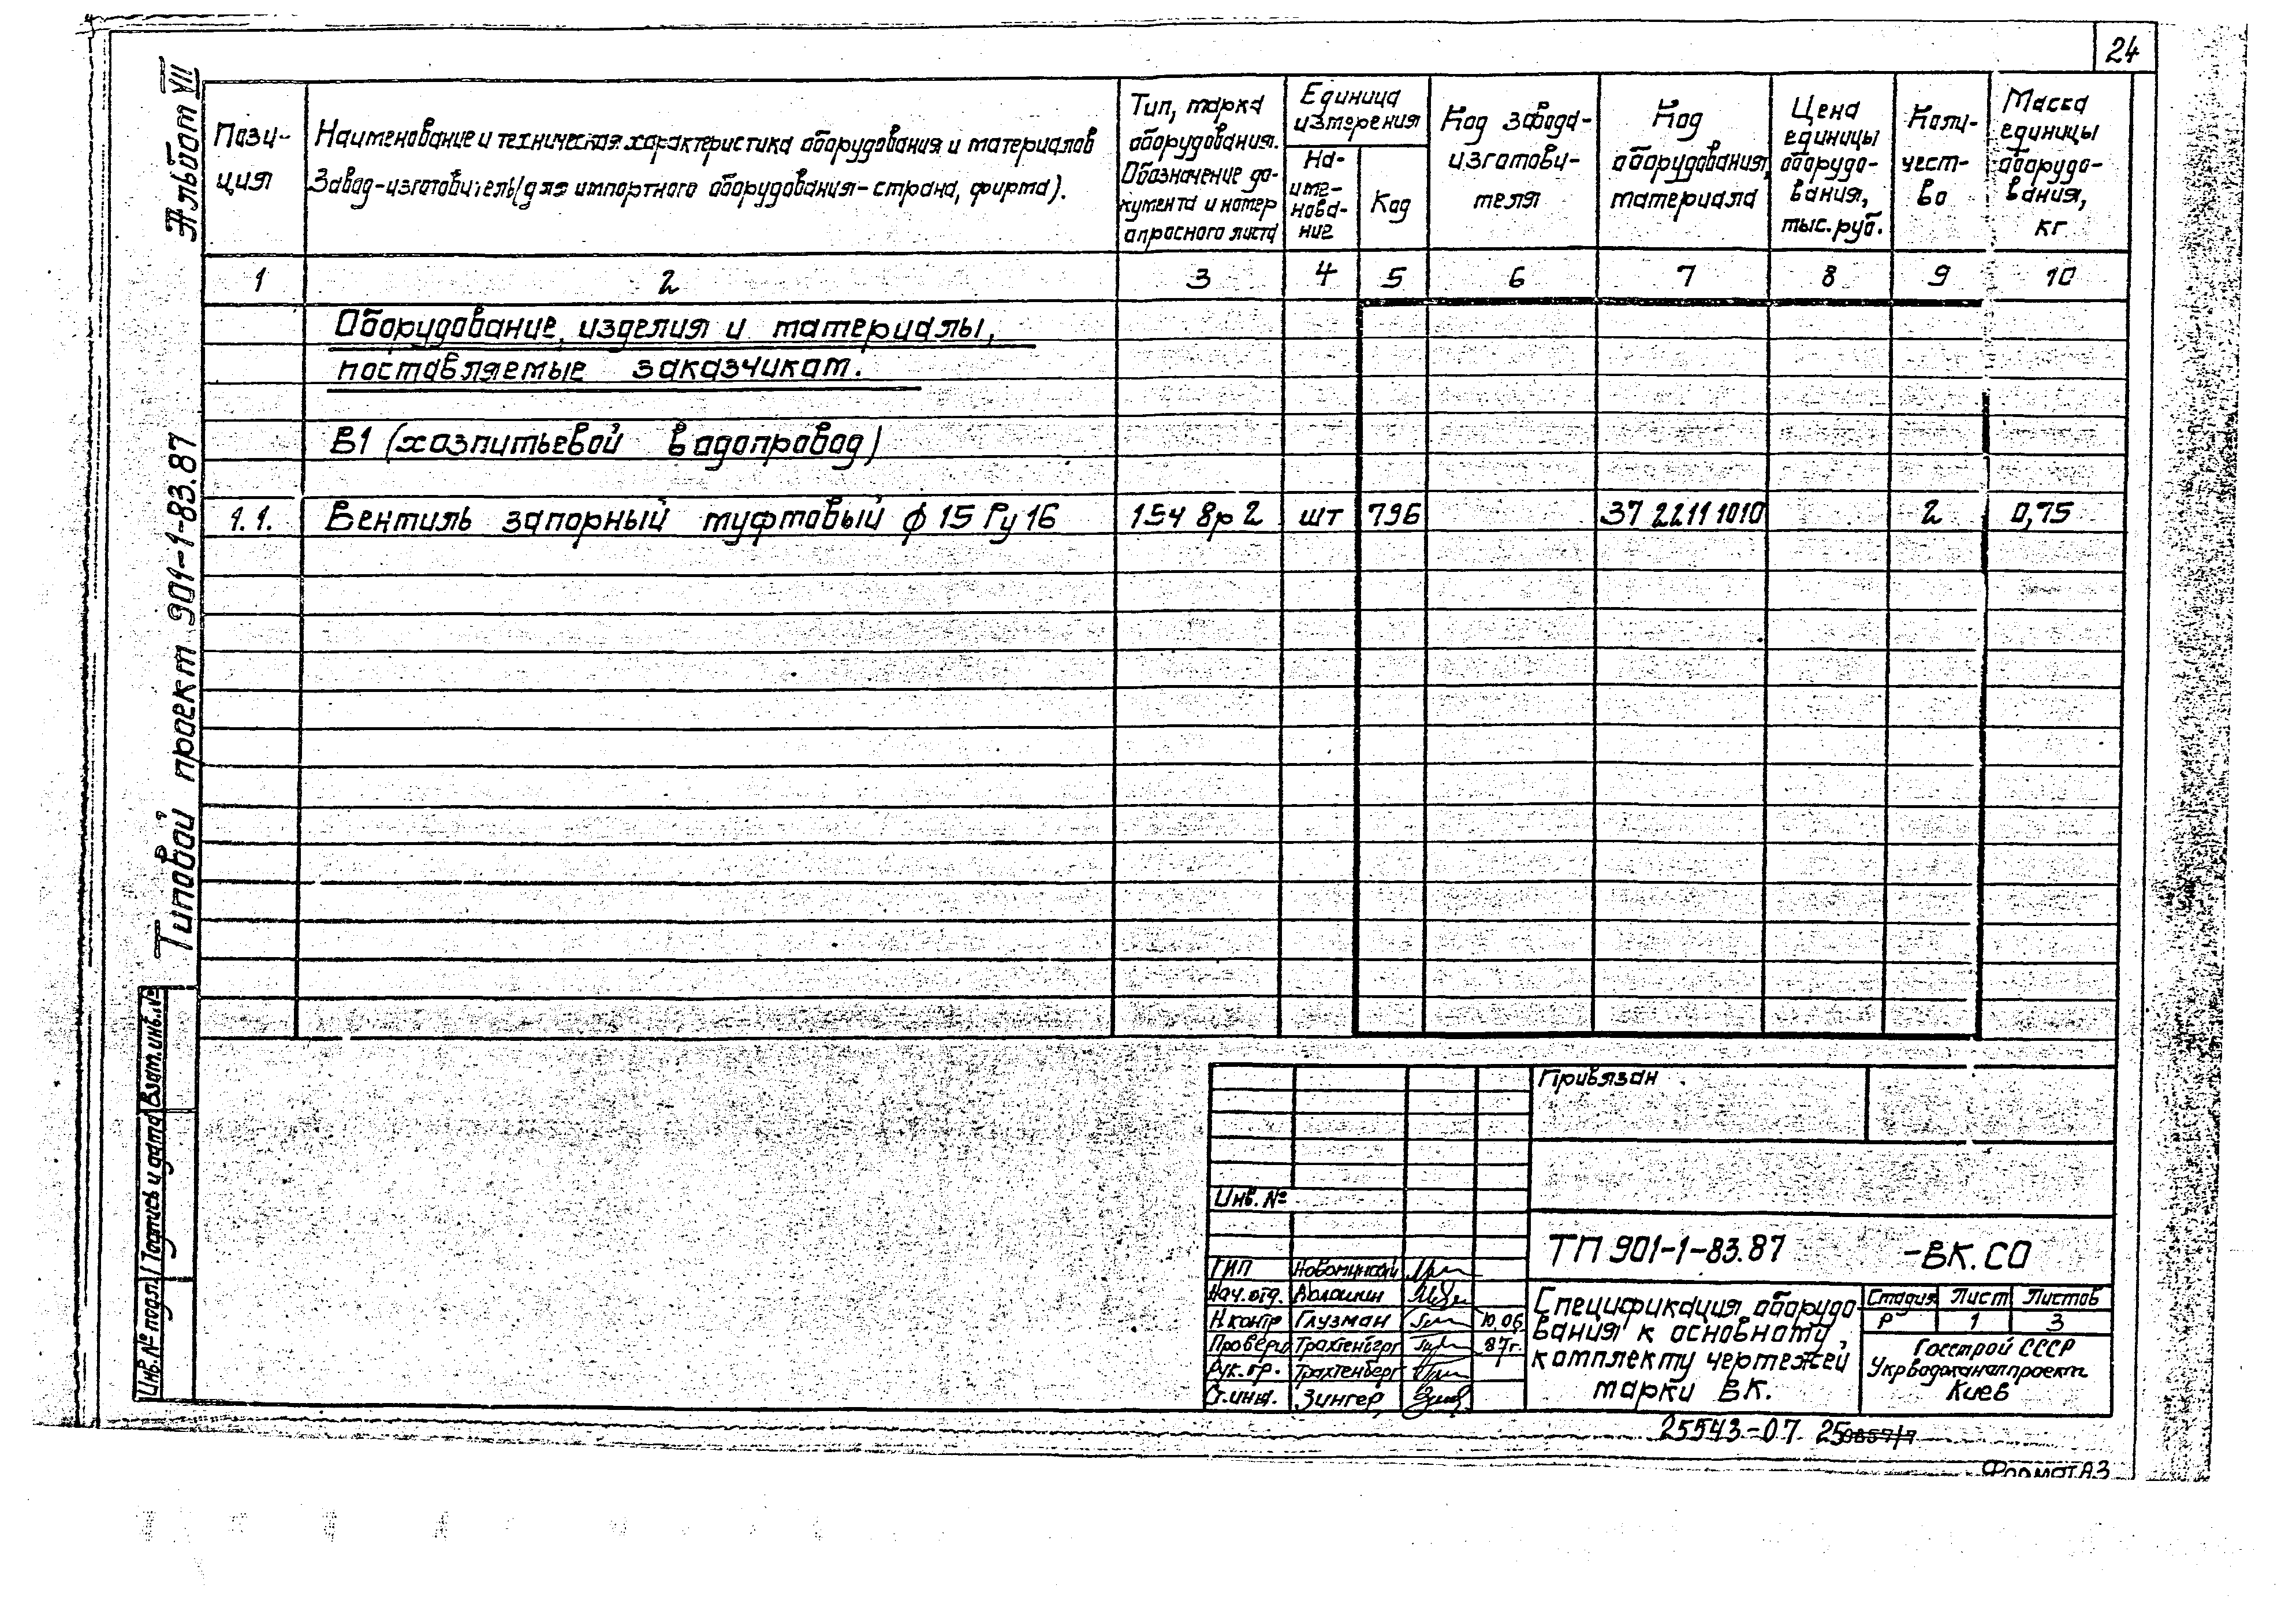 24
Альбом VII
Типовой проект 901-1-83.87
Пози-
ция
Наименование и техническая характеристика оборудования и материалов
Завод-изготовитель (для импортного оборудования - страна, фирма).
Тип, марка
оборудования.
Обозначение до-
кумента и номер
опросного листа
Единица
измерения
На-
име-
нова-
ние
Код
Код завода-
изготови-
теля
Код
оборудования,
материала
Цена
единицы
оборудо-
вания,
тыс. руб.
Коли-
чест-
во
Масса
единицы
оборудо-
вания,
кг
1 2 3 4 5 6 7 8 9 10
Оборудование, изделия и материалы,
поставляемые заказчиком.
В1 (хозпитьевой водопровод)
1.1. Вентиль запорный муфтовый ф 15 Ру 16 15ч 8р 2 шт 796 37 2211 1010 2 0,75
Взам.инв.№
Подпись и дата
Инв.№ подл.
Привязан
Инв. №
ТП 901-1-83.87 -ВК.СО
ГИП Новоминский
Нач.отд. Волошин
Н.контр Глузман 10.06
Проверил Трахтенберг 87г.
Рук.гр. Трахтенберг
Ст.инж. Зингер
Спецификация оборудо
вания к основному
комплекту чертежей
марки ВК.
Стадия Лист Листов
Р 1 3
Госстрой СССР
Укрводоканалпроект
Киев
25543-07 25
Формат А3